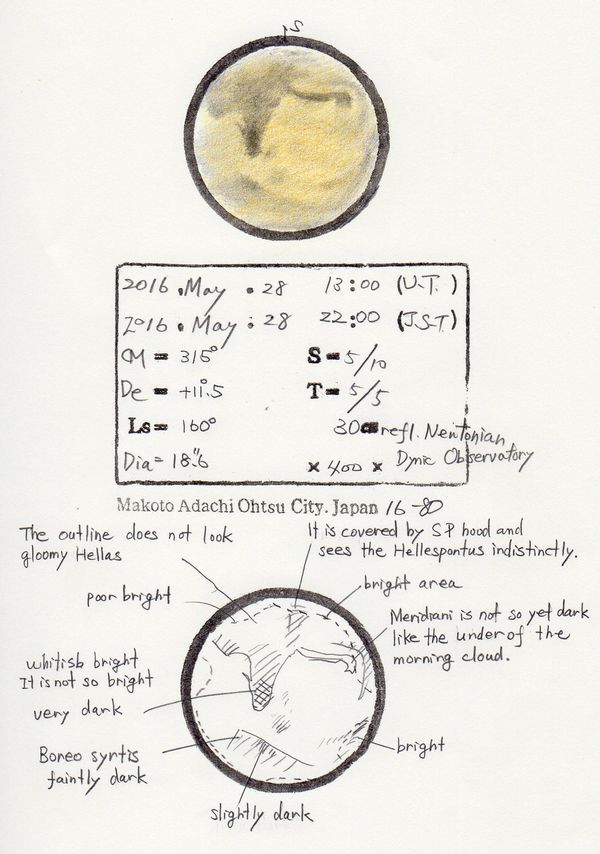 2016 . May . 28 13:00 (U.T.)
2016 . May . 28 22:00 (J.S.T)
CM = 315° S = 5/10
De = +11°.5 T = 5/5
Ls = 160° 30cm refl. Newtonian
Dia = 18".6 × 400 × Dynic Observatory
Makoto Adachi Ohtsu City. Japan 16-80
The outline does not look
gloomy Hellas
It is covered by SP hood and
sees the Hellespontus indistinctly.
poor bright
bright area
Meridiani is not so yet dark
like the under of the
morning cloud.
whitish bright
It is not so bright
very dark
Boreo syrtis
faintly dark
bright
slightly dark